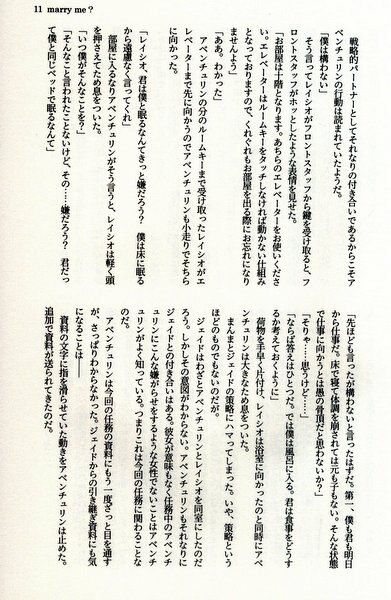 11 marry me？
戦略的パートナーとしてそれなりの付き合いであるからこそア
ベンチュリンの行動は読まれていたようだ。
「僕は構わない」
そう言ってレイシオがフロントスタッフから鍵を受け取ると、フ
ロントスタッフがホッとしたような表情を見せた。
「お部屋は十階となります。あちらのエレベーターをお使いくださ
い。エレベーターはルームキーをタッチしなければ動かない仕組み
となっておりますので、くれぐれもお部屋を出る際にお忘れになり
ませんよう」
「ああ。わかった」
アベンチュリンの分のルームキーまで受け取ったレイシオがエ
レベーターまで先に向かうのでアベンチュリンも小走りでそちら
に向かった。
「レイシオ、君は僕と眠るなんてきっと嫌だろう？　僕は床に眠る
から遠慮なく言ってくれ」
部屋に入るなりアベンチュリンがそう言うと、レイシオは軽く頭
を押さえてため息をついた。
「いつ僕がそんなことを？」
「そんなこと言われたことないけど、その……嫌だろう？　君だっ
て僕と同じベッドで眠るなんて」
「先ほども言ったが構わないと言ったはずだ。第一、僕も君も明日
から仕事だ。床で寝て体調を崩されては元も子もない。そんな状態
で仕事に向かうとは愚の骨頂だと思わないか？」
「そりゃ……思うけど……」
「ならば答えはひとつだ。では僕は風呂に入る。君は食事をどうす
るか考えておくように」
荷物を手早く片付け、レイシオは浴室に向かったのと同時にアベ
ンチュリンは大きなため息をついた。
まんまとジェイドの策略にハマってしまった。いや、策略という
ほどのものでもないのだが。
ジェイドはわざとアベンチュリンとレイシオを同室にしたのだ
ろう。しかしその意図がわからない。アベンチュリンもそれなりに
ジェイドとの付き合いはある。彼女が意味もなく任務中のアベンチ
ュリンにこんな嫌がらせをするような女性でないことはアベンチ
ュリンがよく知っている。つまりこれは今回の任務に関わることな
のだ。
アベンチュリンは今回の任務の資料にもう一度ざっと目を通す
が、さっぱりわからなかった。ジェイドからの引き継ぎ資料にも気
になることは――
資料の文字に指を滑らせていた動きをアベンチュリンは止めた。
追加で資料が送られてきたのだ。